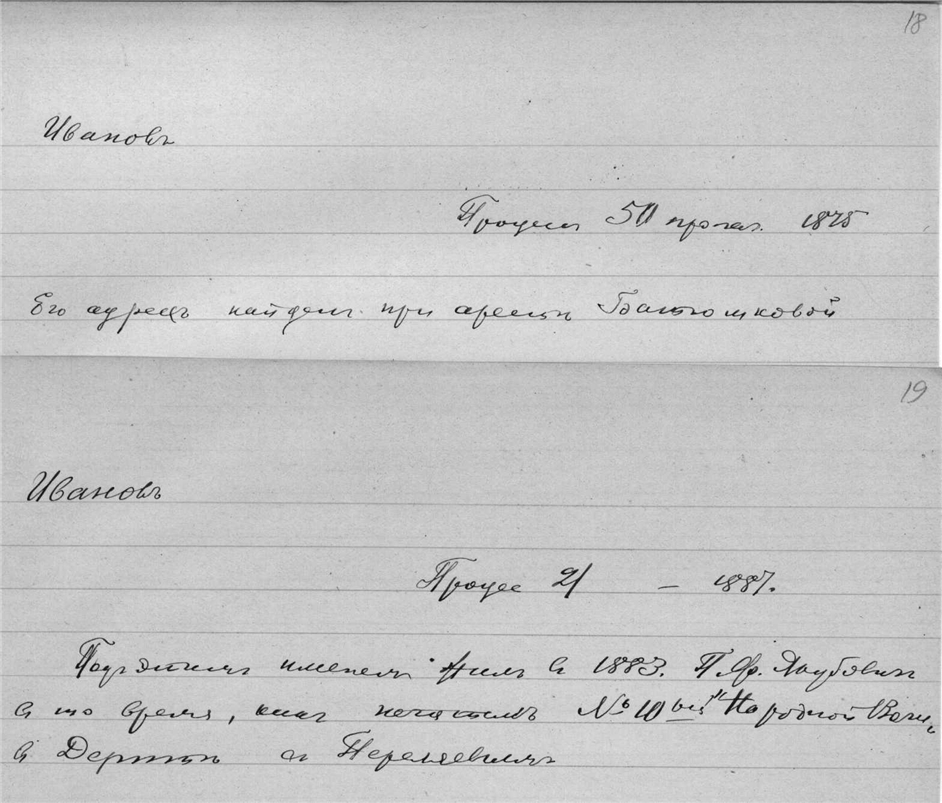 18
Ивановъ
Процессъ 50 прокл. 1875
Его адресъ найденъ при арестѣ Батюшковой
19
Ивановъ
Процес 21 — 1887.
Подъ этимъ именемъ жилъ въ 1883. П. Ф. Якубовичъ
въ то время, какъ печаталъ № 10ый "Народной Воли"
въ Дерптѣ съ Переляевымъ